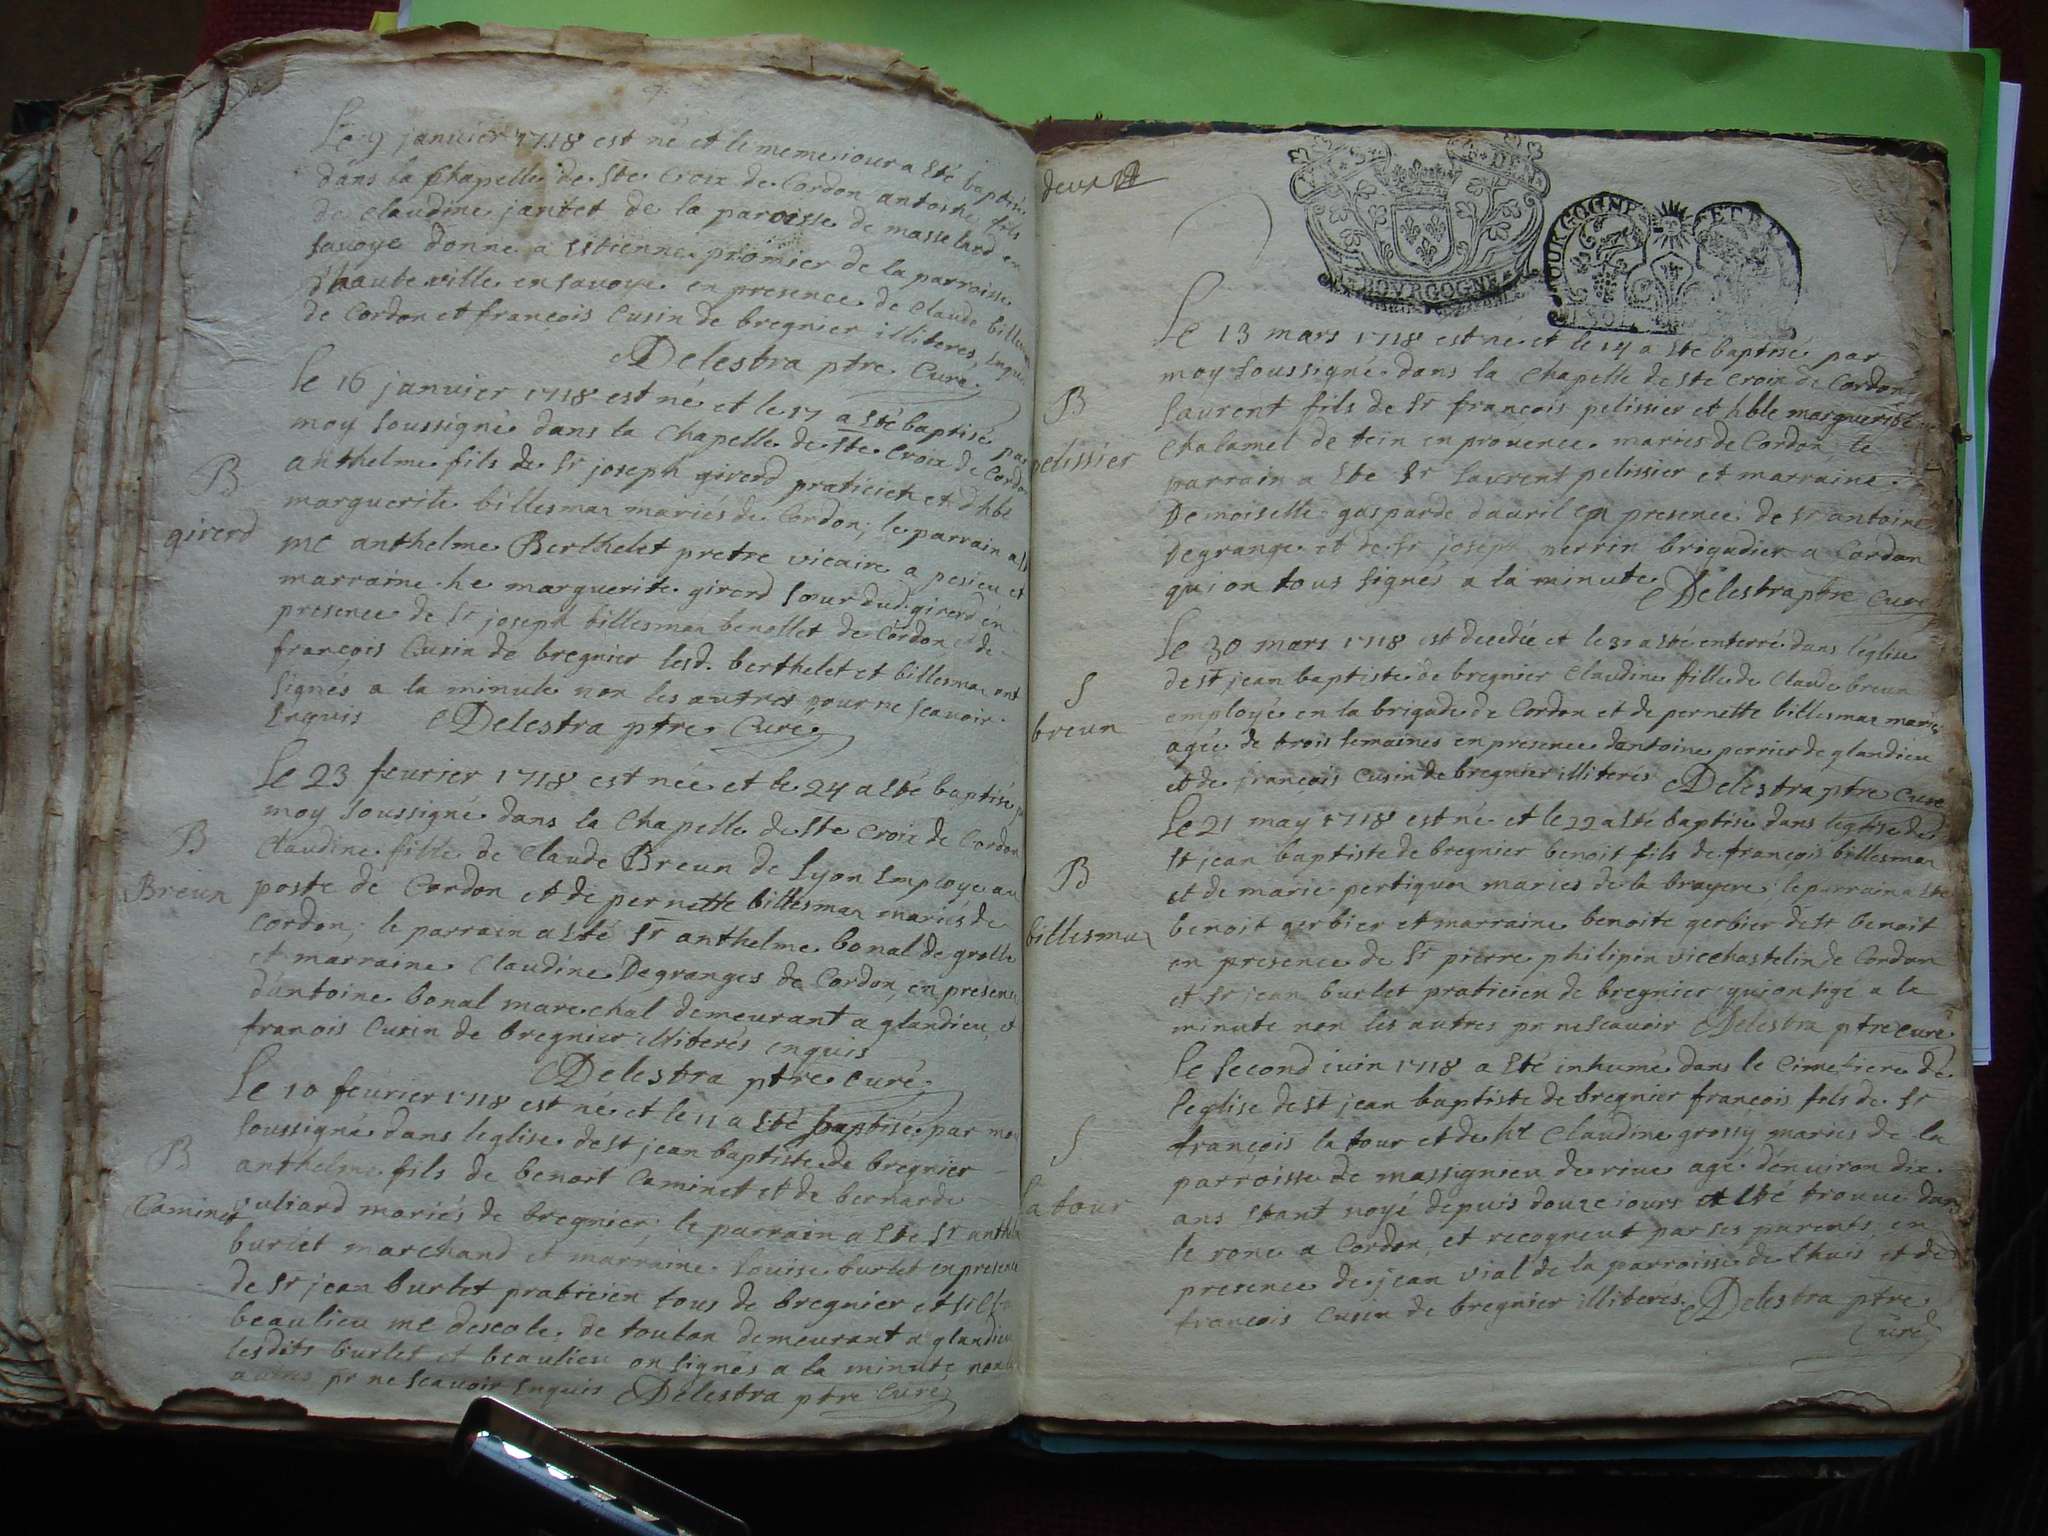 Le 9 janvier 1718 est né et le meme iour a Sté baptisé
dans la Chapelle de Ste Croix de Cordon antoine fils
de Claudine jantet de la paroisse de masse lard en
Savoye donné a Estienne promier de la parroisse
d'haute ville en Savoye en presence de Claude billemaz
de Cordon et francois Cusin de bregnier illiterés, enquis
Delestra ptre Curé
B
girerd
Le 16 janvier 1718 est né et le 17 a Sté baptisé par
moy Soussigné dans la Chapelle de Ste Croix de Cordon
anthelme fils de Sr joseph girerd praticien et d'hble
marguerite billemaz mariés de Cordon; le parrain a Sté
me anthelme Berthelet pretre vicaire a pesieu et
marraine he marguerite girerd Sœur dud. girerd en
presence de Sr joseph billesmaz benollet de Cordon et de
françois Cusin de bregnier lesd. berthelet et billesmaz ont
Signés a la minute non les autres pour ne Scavoir
Enquis Delestra ptre Curé
B
Breun
Le 23 fevrier 1718 est née et le 24 a Sté baptisé par
moy Soussigné dans la Chapelle de Ste Croix de Cordon
Claudine fille de Claude Breun de Lyon Employe au
poste de Cordon et de pernette billesmaz mariés de
Cordon; le parrain a Sté Sr anthelme bonal de grolle
et marraine Claudine Degranges de Cordon, en presence
d'antoine bonal mareschal demeurant a glandieu, et
franois Cusin de bregnier illiterés enquis
Delestra ptre Curé
B
Caminet
Le 10 fevrier 1718 est né et le 11 a Sté baptisé par moy
Soussigné dans leglise de St jean baptiste de bregnier
anthelme fils de benoit Caminet et de bernarde
vuliard mariés de bregnier; le parrain a Sté Sr anthelme
burlet marchand et marraine Louise burlet en presence
de Sr jean burlet praticien tous de bregnier et Sr
beaulieu me descole de toulon demeurant a glandieu
lesdits burlet et beaulieu on Signés a la minute non les
autres pr ne Scavoir Enquis Delestra ptre Curé
deux
DE
BOVRGOGNE
BOURGOGNE ET BRE
SOL
B
pelissier
Le 13 mars 1718 est né et le 14 a Sté baptisé par
moy Soussigné dans la Chapelle de Ste Croix de Cordon
Laurent fils de Sr françois pelissier et hble marguerite
Chalamel de tein en provence mariés de Cordon; le
parrain a Sté Sr Laurent pelissier et marraine
Demoiselle gasparde dauril en presence de Sr antoine
Degrange et de Sr joseph perrin brigadier a Cordon
qui on tous Signés a la minute Delestra ptre Curé
S
breun
Le 30 mars 1718 est decedée et le 31 a Sté enterré dans l'église
de St jean baptiste de bregnier Claudine fille de Claude breun
employé en la brigade de Cordon et de pernette billesmaz mariés
agée de trois Semaines en presence dantoine perrier de glandieu
et de francois Cusin de bregnier illiterés Delestra ptre Curé
B
billesmaz
Le 21 may 1718 est né et le 22 a Sté baptisé dans leglise de
St jean baptiste de bregnier benoit fils de françois billesmaz
et de marie pertiquoz mariés de la bruyere; le parrain a Sté
benoit gerbier et marraine benoite gerbier de St benoit
en presence de Sr pierre philipin vicechastelin de Cordon
et Sr jean burlet praticien de bregnier qui on Sgé a la
minute non les autres pr ne Scavoir Delestra ptre Curé
S
la tour
Le Second iuin 1718 a Sté inhumé dans le Cimetiere de
leglise de St jean baptiste de bregnier françois fils de Sr
françois la tour et de he Claudine grossy mariés de la
parroisse de massignieu de rive agé d'environ dix
ans Stant noyé depuis douze iours et Sté trouvé dans
le rone a Cordon, et recogneut par ses parents en
presence de jean vial de la parroisse de Lhuis et de
françois Cusin de bregnier illiterés Delestra ptre
Curé